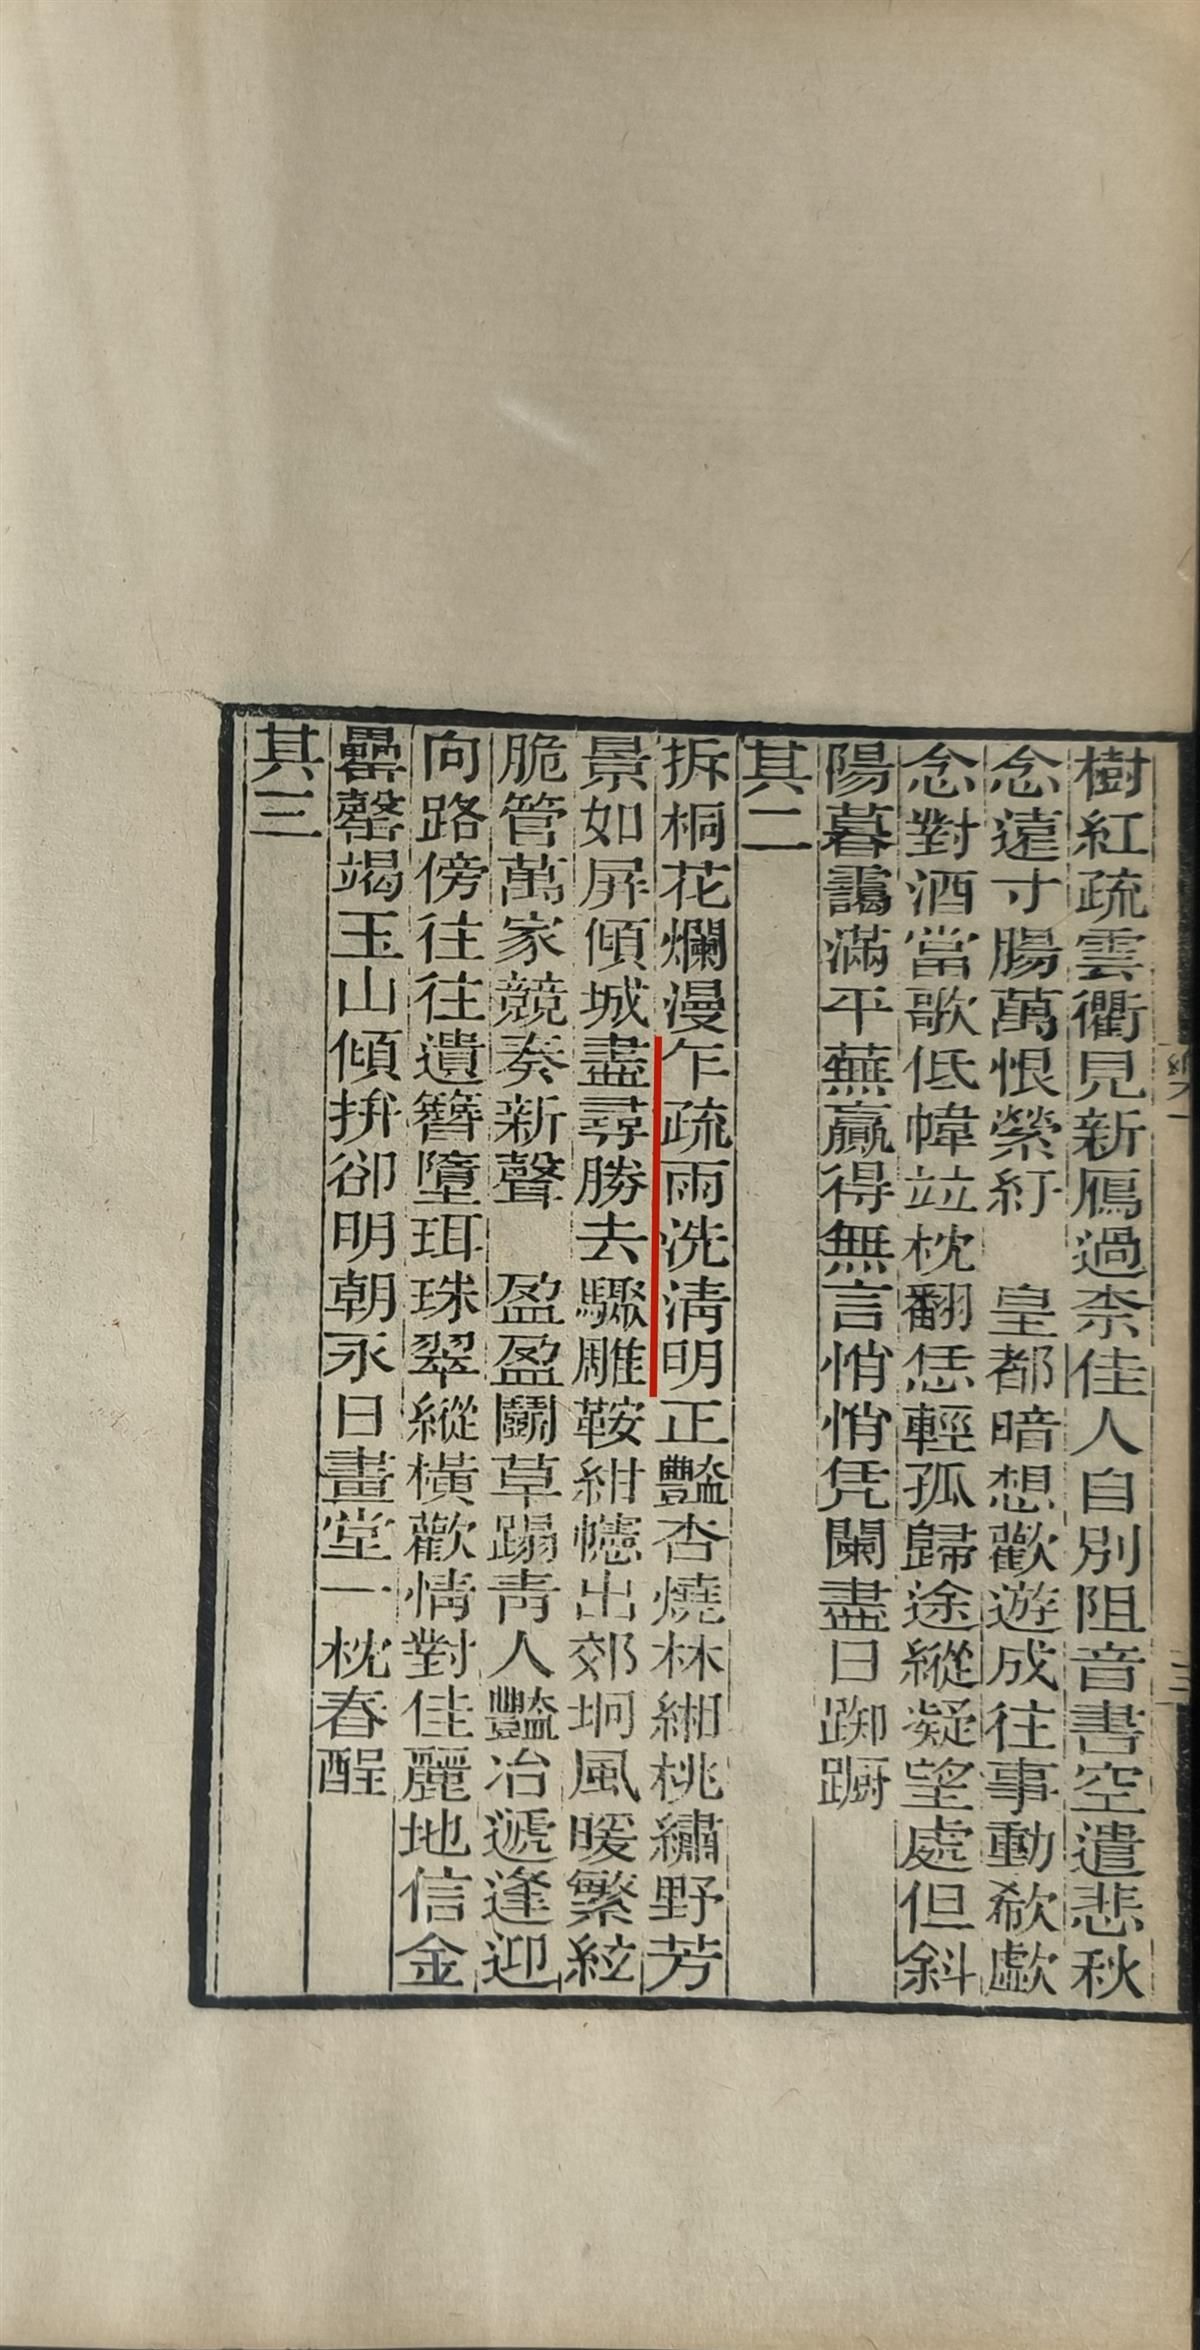 樹紅疏雲衢見新鴈過柰佳人自別阻音書空遣悲秋
念遠寸腸萬恨縈紆　皇都暗想歡遊成往事動欷歔
念對酒當歌低幃竝枕翻恁輕孤歸途縱凝望處但斜
陽暮靄滿平蕪贏得無言悄悄凭闌盡日踟蹰
其二
拆桐花爛漫乍疏雨洗淸明正豔杏燒林緗桃繡野芳
景如屏傾城盡尋勝去驟雕鞍紺幰出郊坰風暖繁絃
脆管萬家競奏新聲　盈盈鬭草蹋靑人豔冶遞逢迎
向路傍往往遺簪墮珥珠翠縱橫歡情對佳麗地信金
罍罄竭玉山傾拚卻明朝永日畫堂一枕春酲
其三